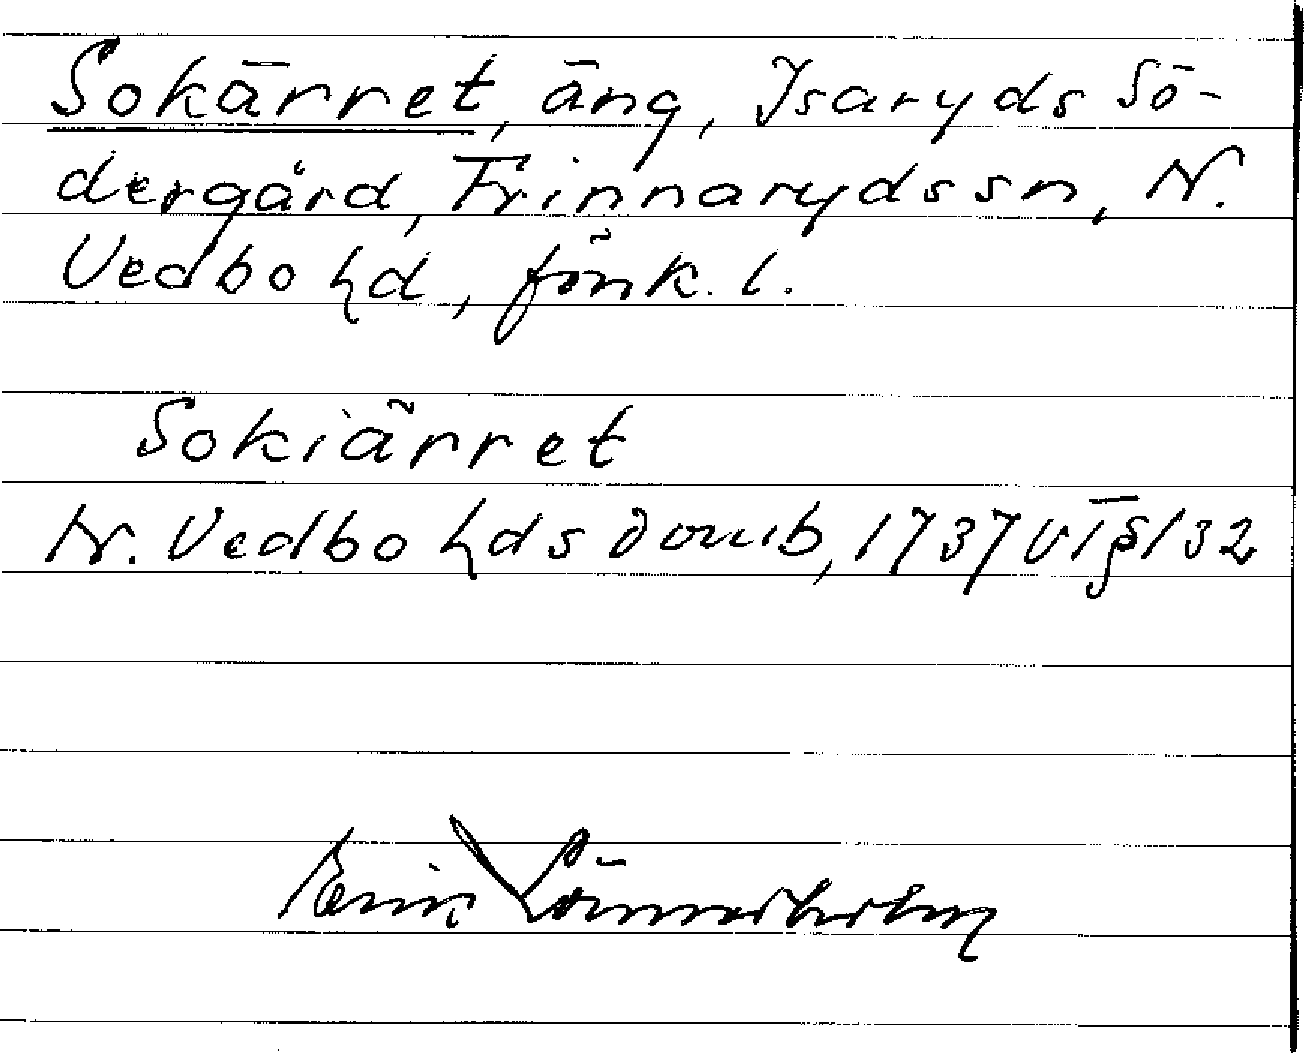 Sokärret, äng, Isaryds Sö-
dergård, Frinnaryds sn, N.
Vedbo hd, Jönk. l.
Sokiärret
N. Vedbo hds domb, 1737 VT § 132
Erik Lönnerholm